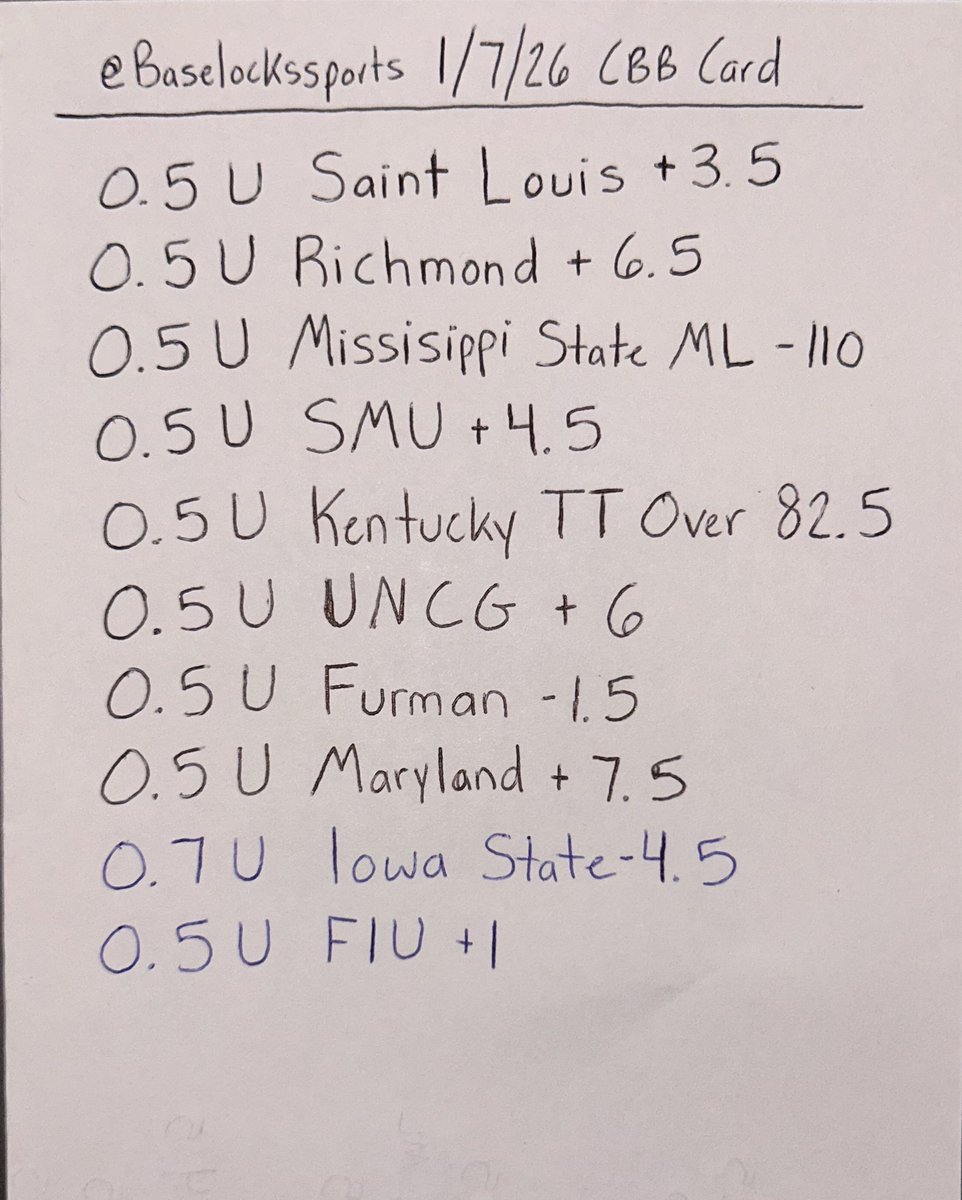 @Baselockssports 1/7/26 CBB Card
0.5 U Saint Louis +3.5
0.5 U Richmond +6.5
0.5 U Missisippi State ML -110
0.5 U SMU +4.5
0.5 U Kentucky TT Over 82.5
0.5 U UNCG +6
0.5 U Furman -1.5
0.5 U Maryland +7.5
0.7 U Iowa State -4.5
0.5 U FIU +1